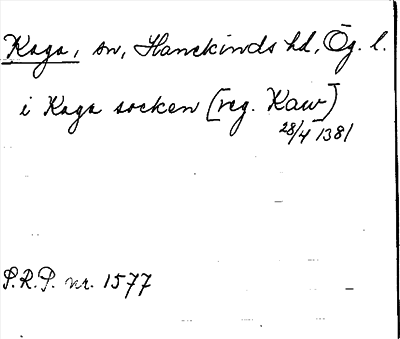 Kaga, sn, Hanekinds hd, Ög. l.
i Kaga socken [reg. Kaw]
28/4 1381
S.R.P. nr. 1577